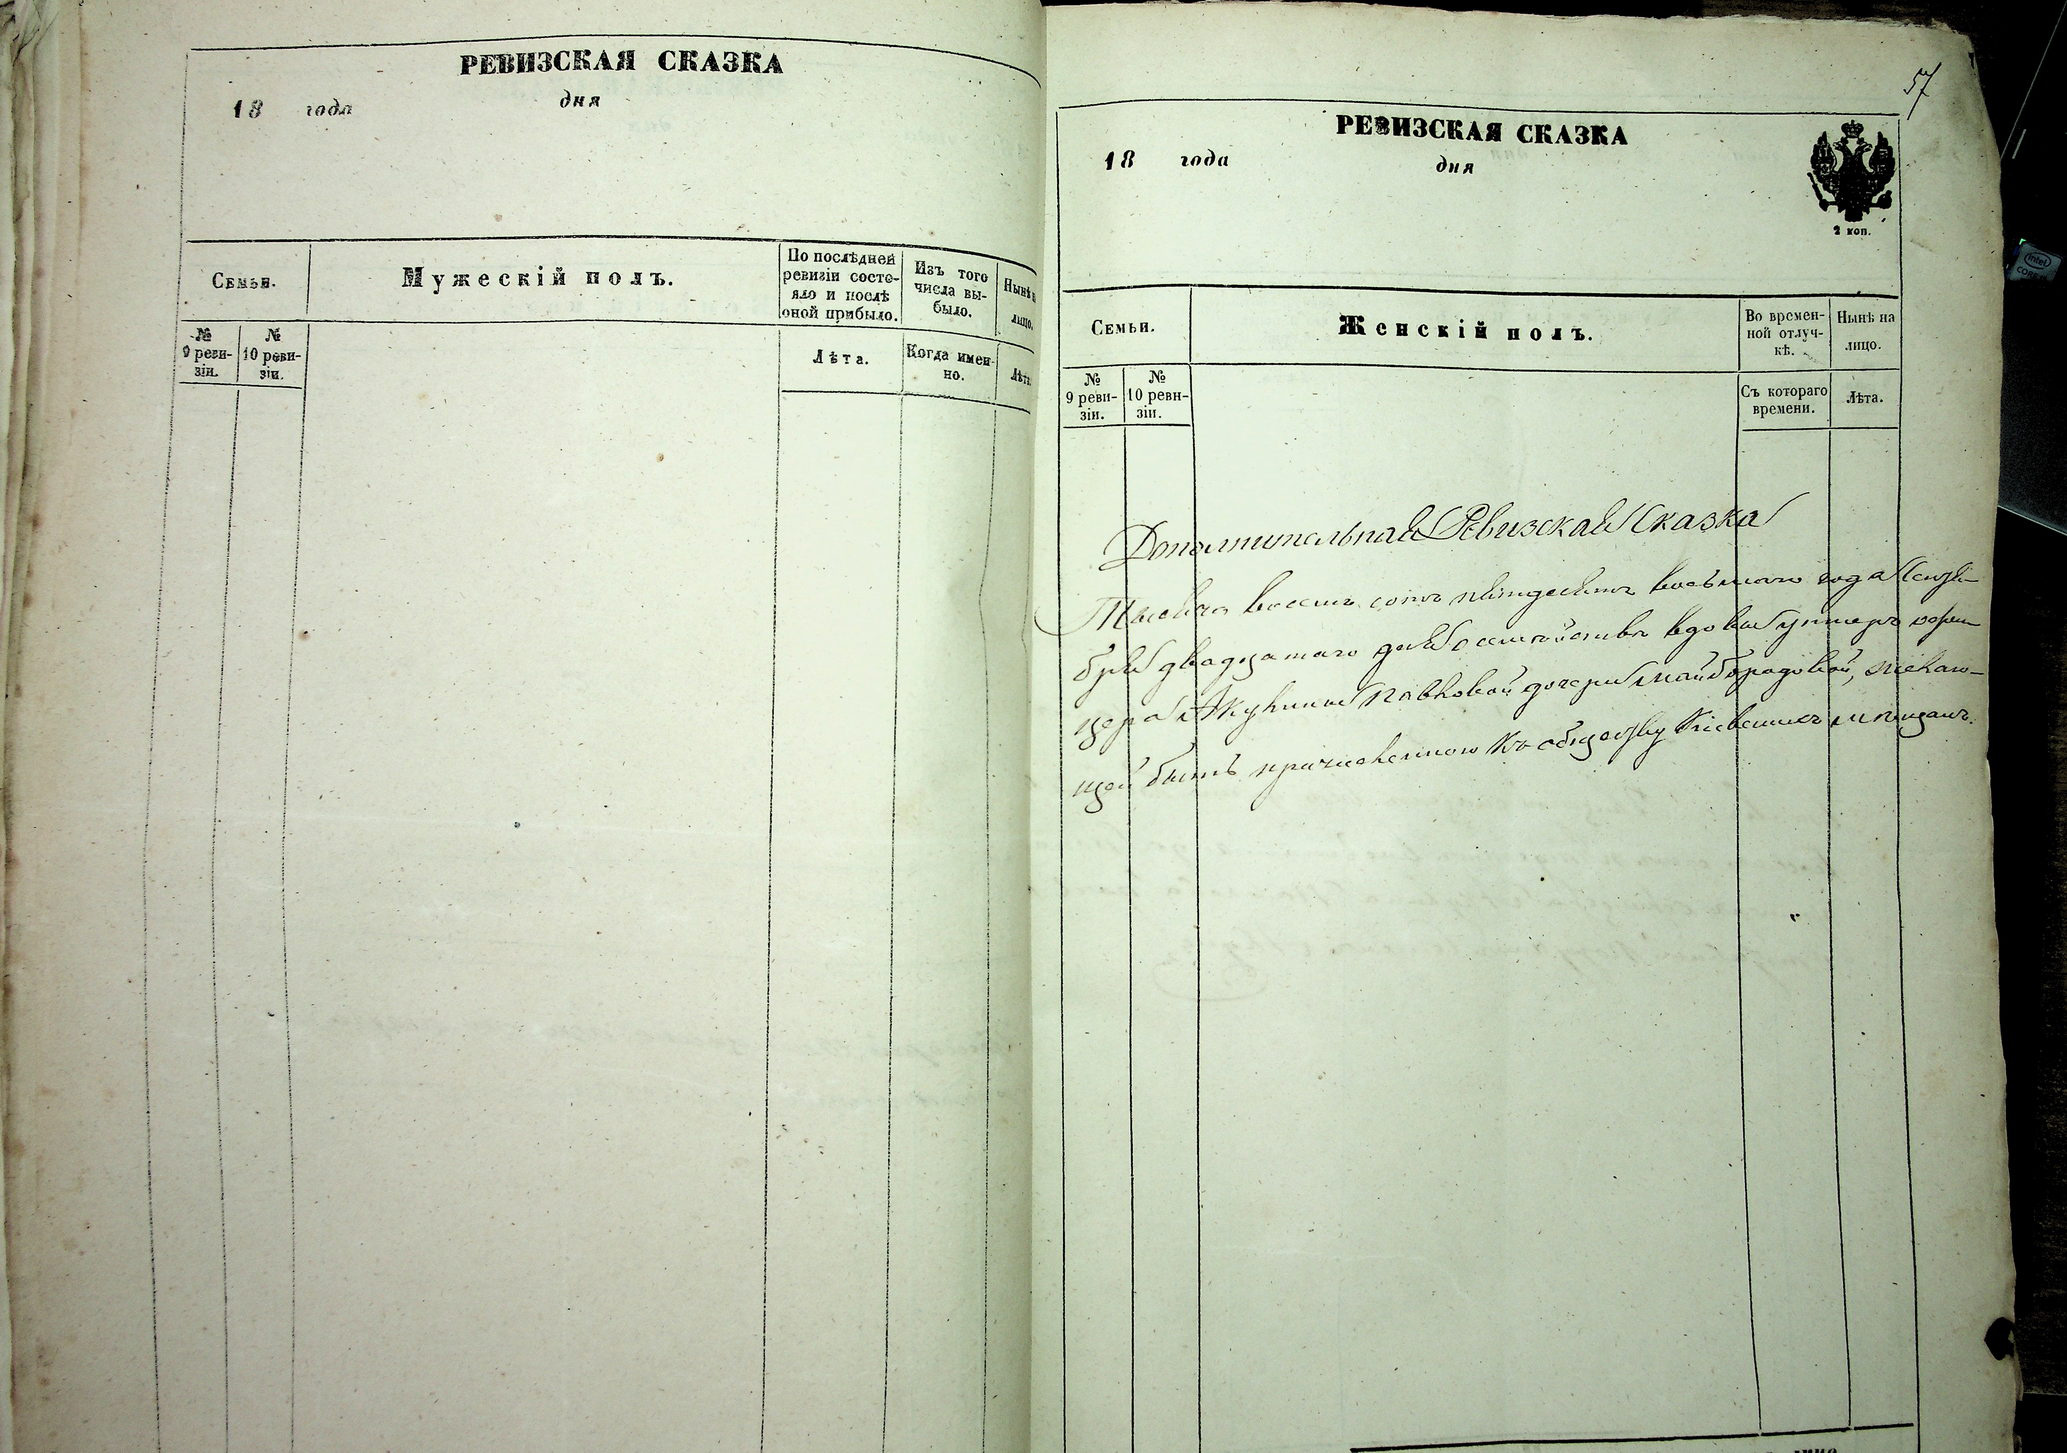 РЕВИЗСКАЯ СКАЗКА
18 года дня
Семьи.
Мужескій полъ.
По послѣдней
ревизіи состо-
яло и послѣ
оной прибыло.
Изъ того
числа вы-
было.
Нынѣ на
лицо.
№
9 реви-
зіи.
№
10 реви-
зіи.
Лѣта.
Когда имен-
но.
Лѣта.
57
РЕВИЗСКАЯ СКАЗКА
18 года дня
2 коп.
Семьи.
Женскій полъ.
Во времен-
ной отлуч-
кѣ.
Нынѣ на
лицо.
№
9 реви-
зіи.
№
10 реви-
зіи.
Съ котораго
времени.
Лѣта.
Дополнительная Ревизская Сказка
Тысяча восемь сотъ пятдесятъ восьмаго года
бря двадцатаго дня о семействѣ вдовы унтеръ офи-
цера дочери Майбородовой, желаю-
щей быть причисленною къ обществу Кіевскихъ мѣщанъ.